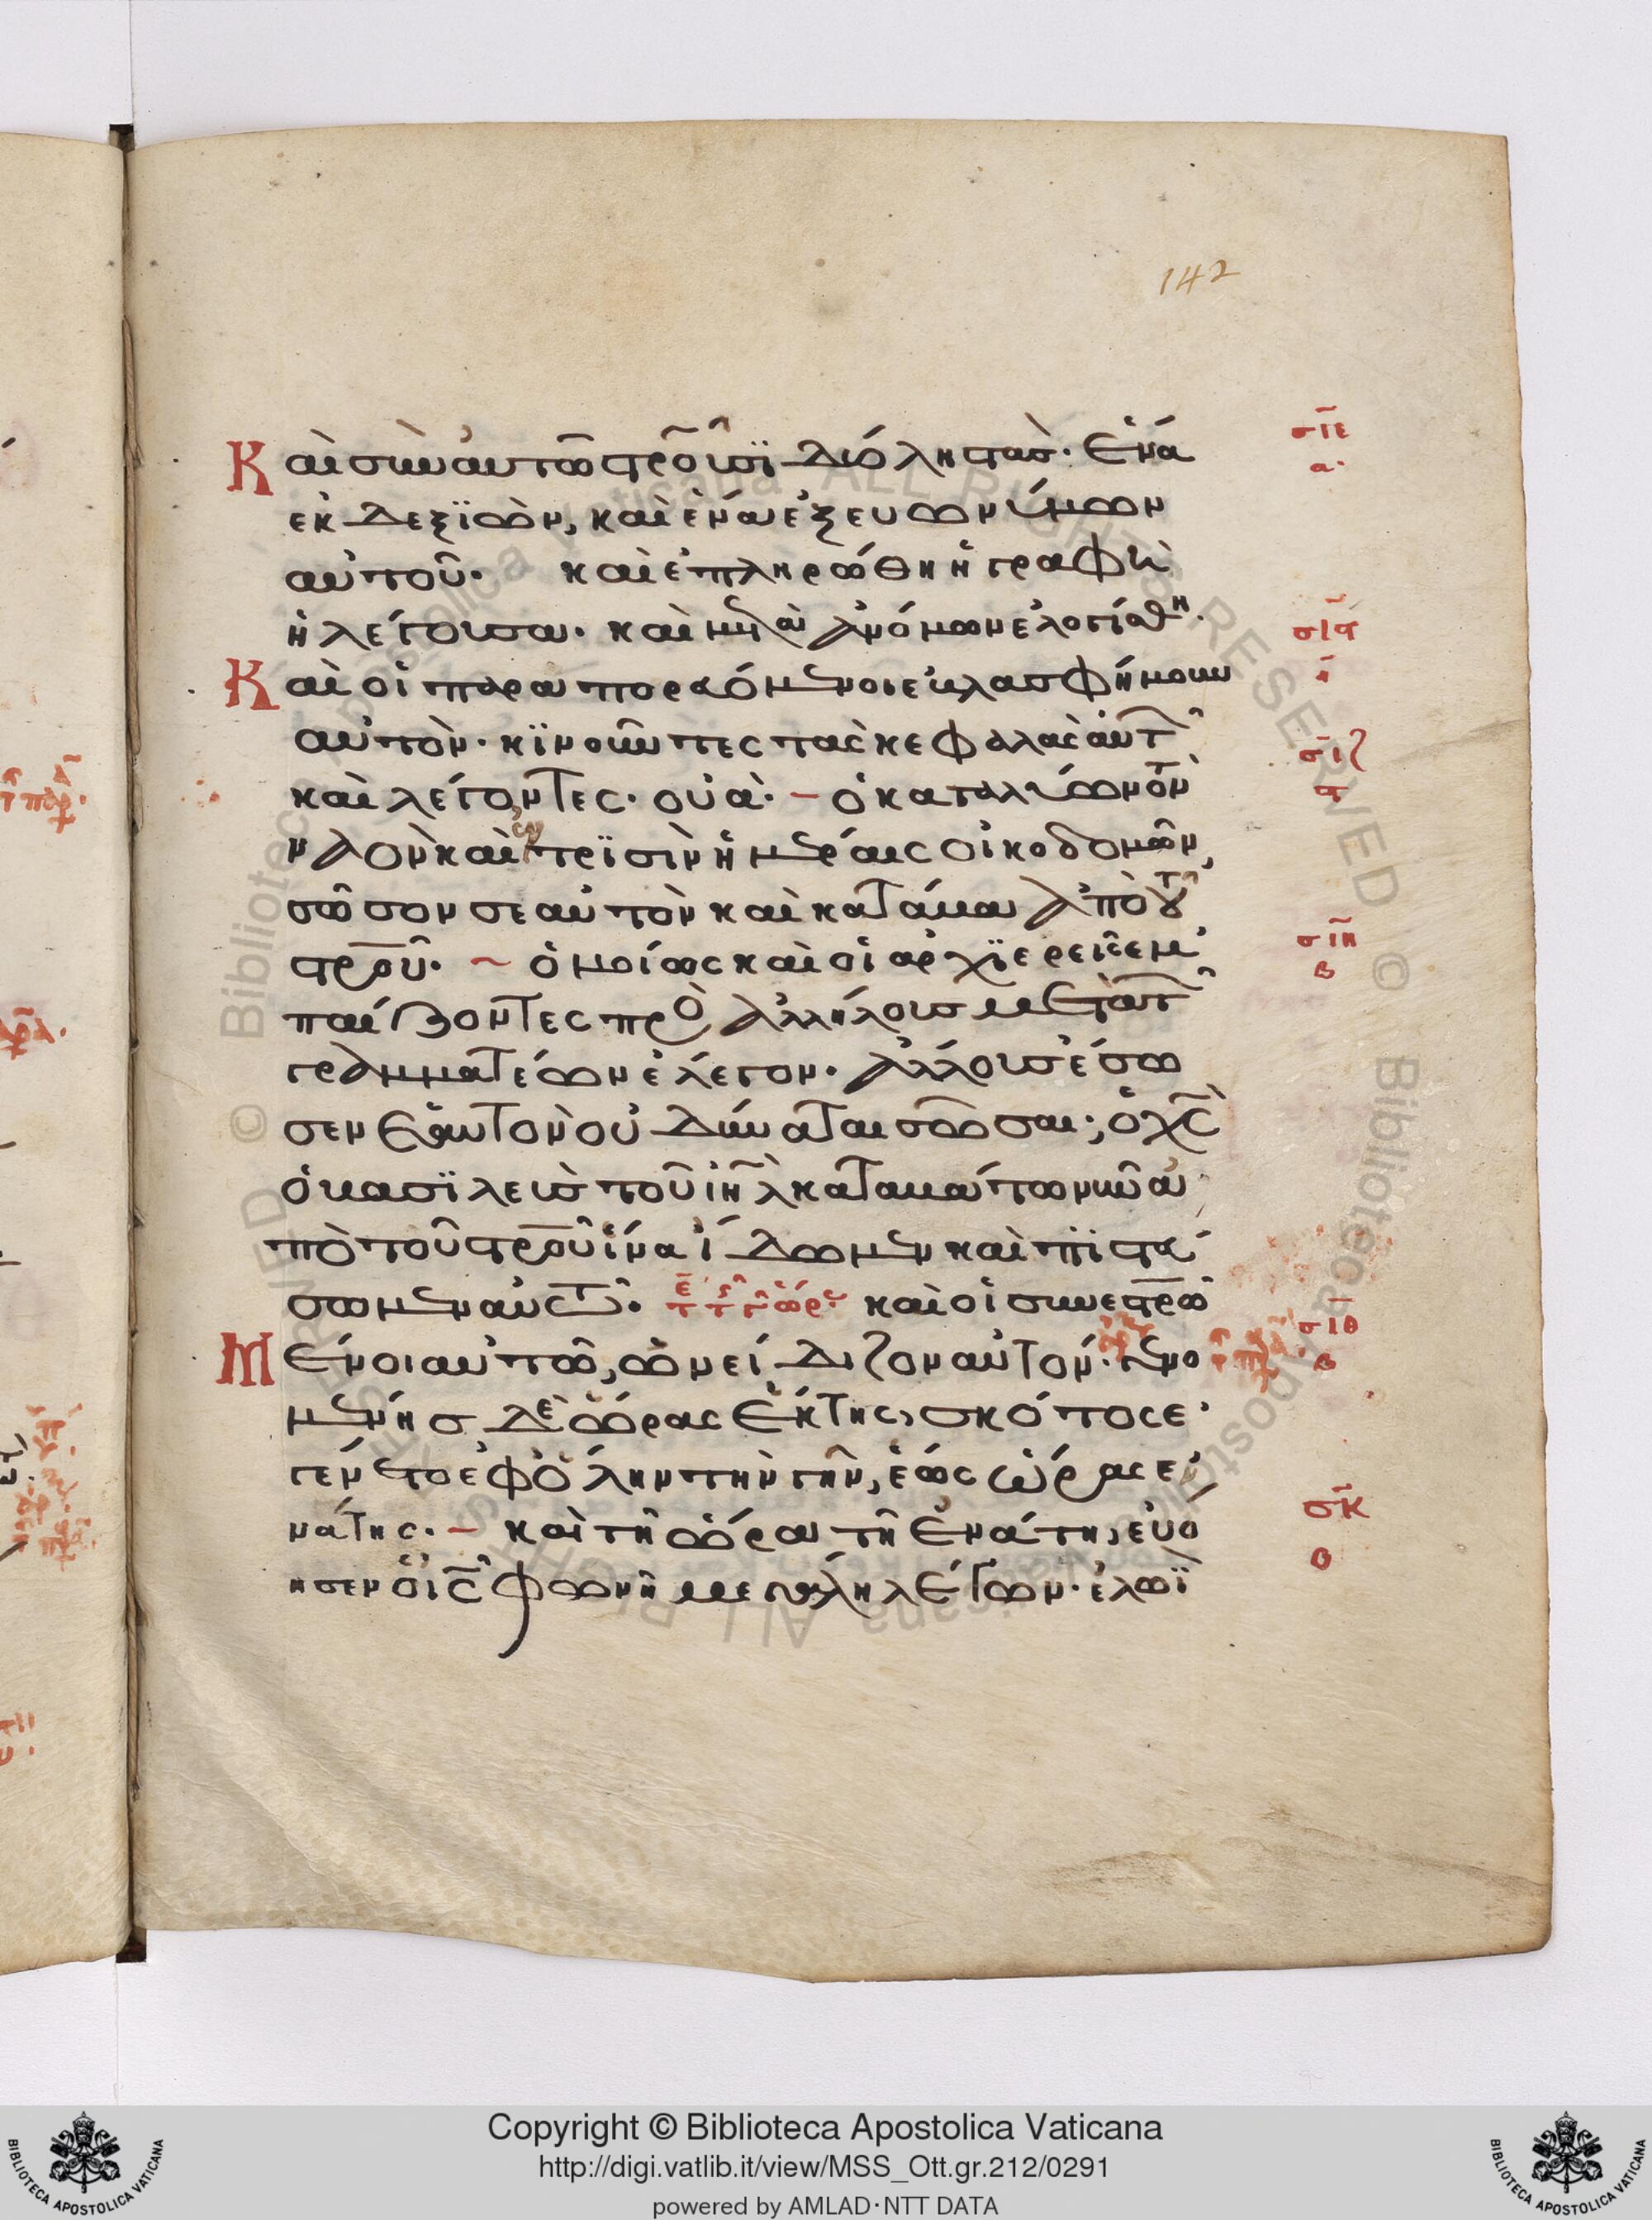 142
Καὶ σὺν αὐτῶ στρ̅οῦσϊ δύο ληστάς· ἕνα
ἐκ δεξϊῶν, καὶ ἕνα ἐξ ευωνύμων
αὐτοῦ· καὶ ἐπληρώθη ἡ γραφὴ
ἡ λέγουσα· καὶ μετὰ ἀνόμων ἐλογίσθη·
Καὶ οἱ παραπορευόμενοι ἐβλασφήμουν
αὐτὸν· κϊνοῦντες τὰς κεφαλὰς αὐτῶ
καὶ λέγοντες· οὐὰ· – ὁ καταλύων τὸν
ναὸν καὶ ἐν τρϊσὶν ἡμέραις οἰκοδομῶν,
σῶσον σεαυτὸν καὶ κατάβα ἀπὸ τοῦ
στρ̅οῦ· ~ ὁμοίως καὶ οἱ ἀρχϊερεῖς ἐμ
παίζοντες πρὸς ἀλλήλους μετὰ τῶν
γραμματέων ἔλεγον· ἄλλους ἔσω
σεν ἑαυτὸν οὐ δύναται σῶσαι·, ὁ χ̅ς
ὁ βασϊλεὺς τοῦ ἰη̅λ καταβάτω νῦν ἀ
πὸ τοῦ στρ̅οῦ ἵνα ἴδωμεν καὶ πϊστεύ
σωμεν αὐτῶ· καὶ οἱ συνεστρ̅ω
Μένοι αὐτῶ, ὠνείδιζον αὐτόν· γενο
μένης δὲ ὥρας ἕκτης, σκότος ἐ
γένετο ἐφ ὅλην τὴν γῆν, ἕως ὥρας ἐν
νάτης· – καὶ τῆ ὥρα τῆ ἐνάτη, ἐβό
ησεν ὁ ι̅ς φωνῆ μεγάλη λέγων· ἐλωῒ
σ̅ιε
α·
σ̅ις
ι
σ̅ιζ
ς
σ̅ιη
β
σ̅ιθ
β
σ̅κ
Copyright © Biblioteca Apostolica Vaticana
http://digi.vatlib.it/view/MSS_Ott.gr.212/0291
powered by AMLAD·NTT DATA
BIBLIOTECA APOSTOLICA VATICANA
BIBLIOTECA APOSTOLICA VATICANA